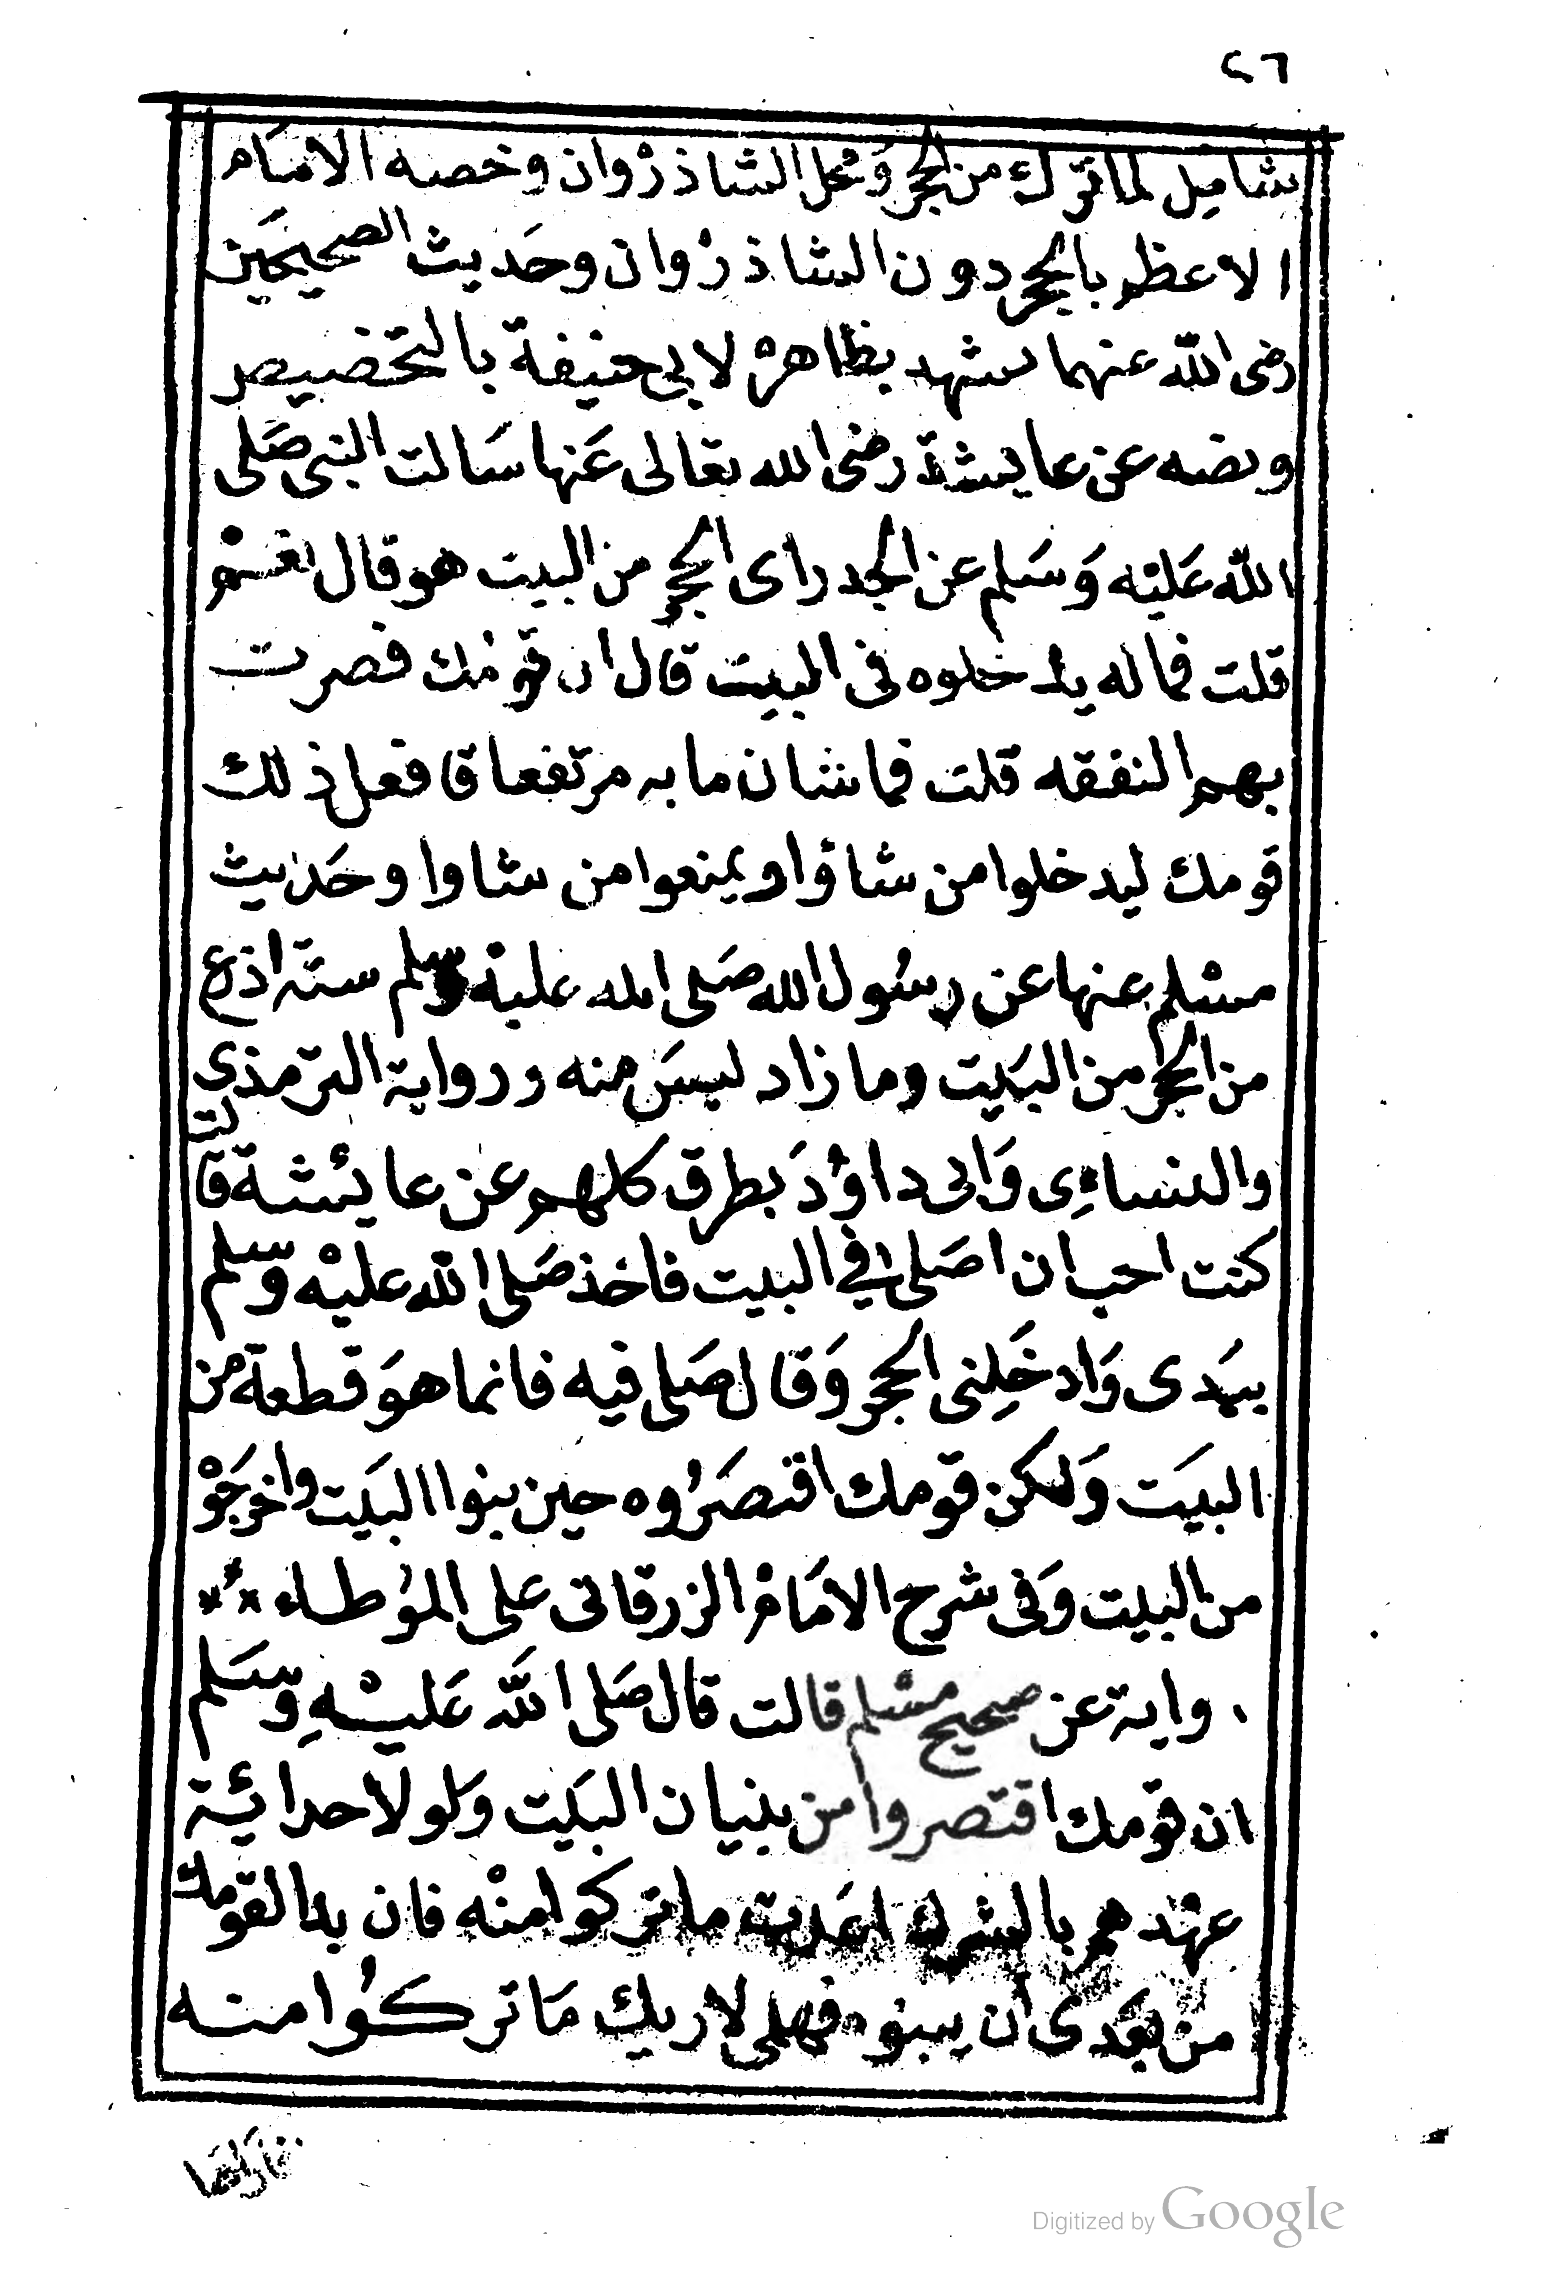 ٢٦
شامل لما ترك من الحجر ومحل الشاذروان وخصه الامام
الاعظم بالحجر دون الشاذروان وحديث الصحيحين
رضى الله عنهما يشهد بظاهره لابي حنيفة بالتخصيص
ونصه عن عايشة رضى الله تعالى عنها سالت النبى صلى
الله عليه وسلم عن الجدر اى الحجر من البيت هو قال نعم
قلت فما له يدخلوه فى البيت قال ان قومك قصرت
بهم النفقه قلت فما شان مابه مرتفعا قا فعل ذلك
قومك ليدخلوا من شاؤا ويمنعوا من شاوا وحديث
مسلم عنها عن رسول الله صلى الله عليه وسلم ستة اذرع
من الحجر من البيت وما زاد ليس منه ورواية الترمذى
والنساءى وابى داؤد بطرق كلهم عن عايئشة قالت
كنت احب ان اصلى في البيت فاخذ صلى الله عليه وسلم
بيدى وادخلنى الحجر وقال صلى فيه فانما هو قطعة من
البيت ولكن قومك اقتصروه حين بنوا البيت واخرجو
من البيت وفى شرح الامام الزرقانى على المؤطاء ***
واية عن صحيح مسلم قالت قال صلى الله عليه وسلم
ان قومك اقتصروا من بنيان البيت ولولا حداثية
عهدهم بالشرك اعدت ما تركوا منه فان بدا لقومك
من بعدى ان يبنوه فهلمى لاريك ما تركوا منه
Digitized by Google